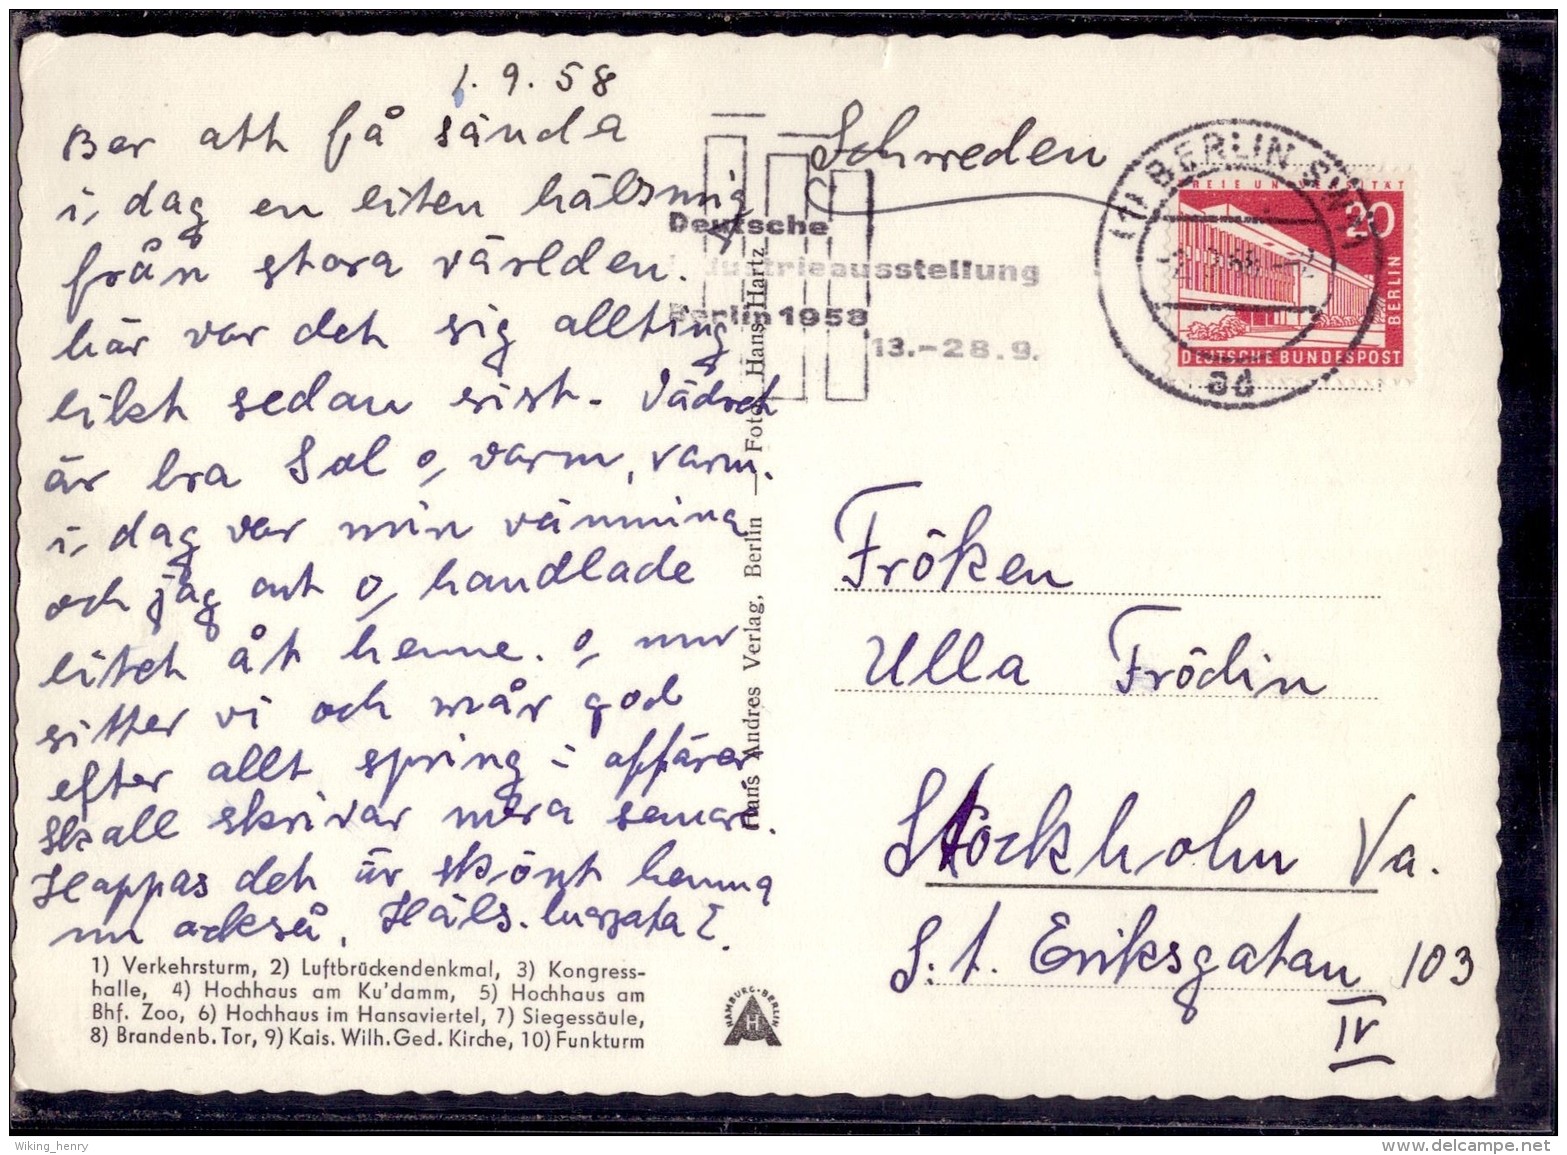 1.9.58
Ber att få sända
i dag en liten hälsning
från stora världen.
här var det sig allting
likt sedan sist. Vädret
är bra Sol o, varm, varm.
i dag var min väninna
och jag ut o, handlade
litet åt henne. o, nu
sitter vi och mår god
efter allt spring i affärer
skall skrivar mera senare.
Hoppas det är skönt hemma
nu också. Häls.
Schweden
Deutsche
Industrieausstellung
Berlin 1958
13.-28.9.
(1) BERLIN SW 11
ad
FREIE UNIVERSITÄT
20
BERLIN
DEUTSCHE BUNDESPOST
Fröken
Ulla Frödin
Stockholm Va.
S:t. Eriksgatan 103
IV
Hans Andres Verlag, Berlin — Foto Hans Hartz
1) Verkehrsturm, 2) Luftbrückendenkmal, 3) Kongress-
halle, 4) Hochhaus am Ku'damm, 5) Hochhaus am
Bhf. Zoo, 6) Hochhaus im Hansaviertel, 7) Siegessäule,
8) Brandenb. Tor, 9) Kais. Wilh. Ged. Kirche, 10) Funkturm
HAMBURG-BERLIN
H
Wiking_henry
www.delcampe.net